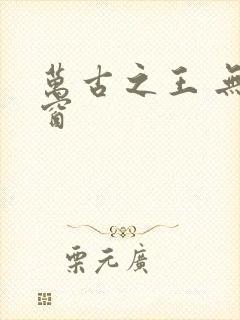 萬古之王 無
窗
栗元廣